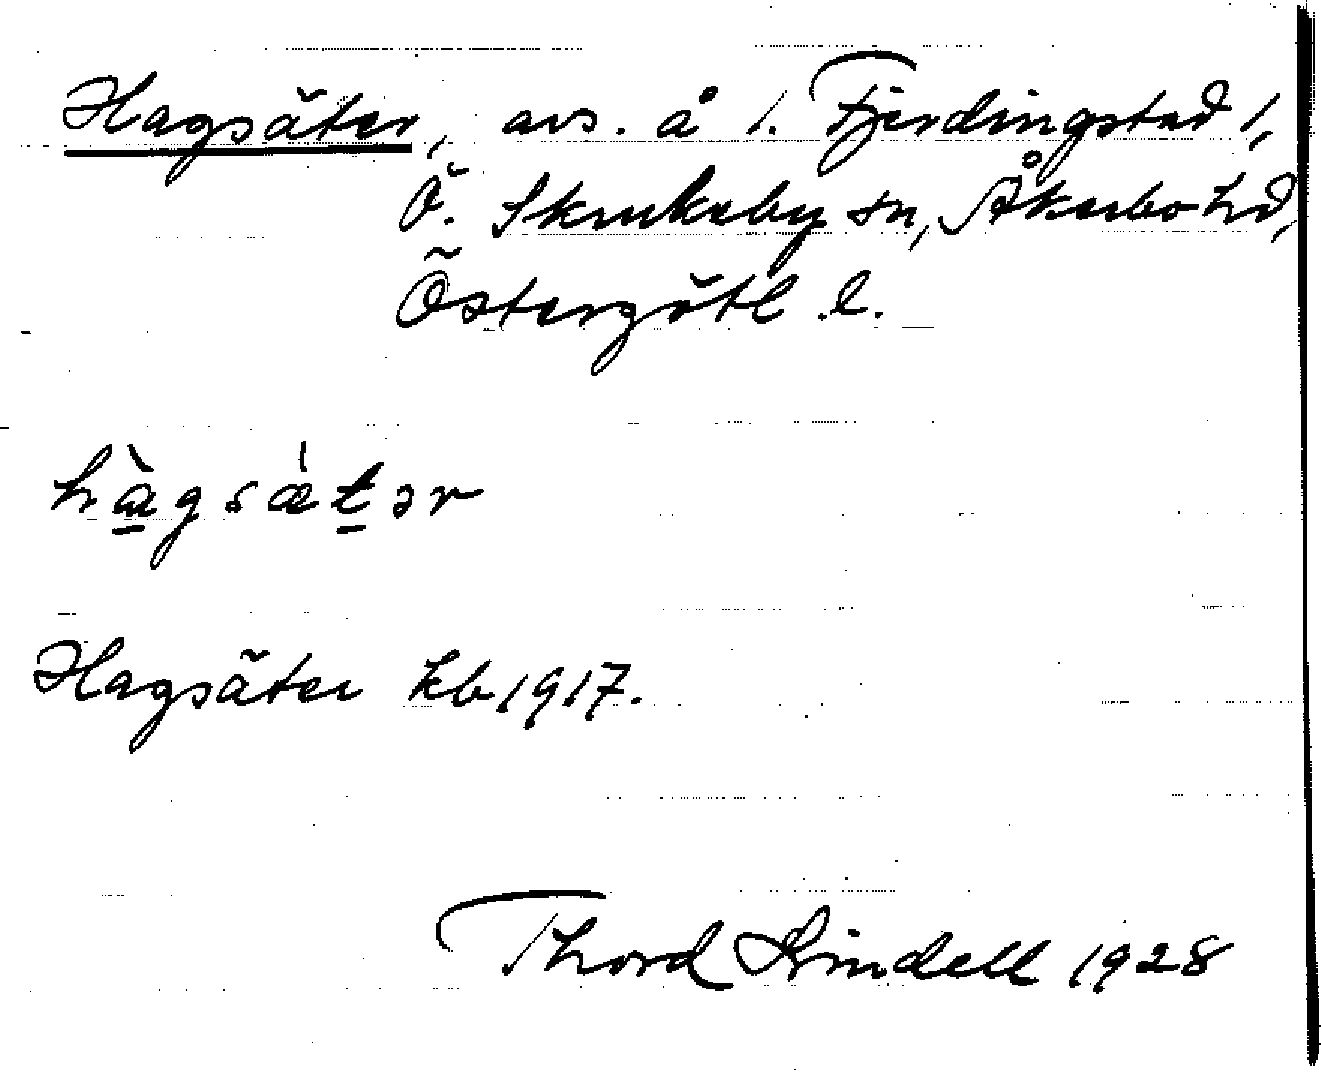 Hagsäter, avs. å 1. Fjerdingstad 1,
Ö. Skrukeby sn, Åkerbo hd,
Östergötl. l.
hàgsǽtər
Hagsäter kb 1917.
Thord Lindell 1928